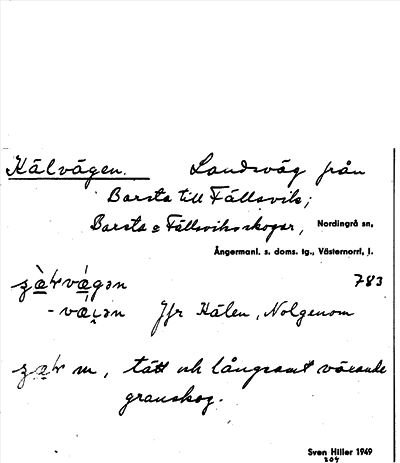 Kälvägen. Landsväg från
Barsta till Fällsvik;
Barsta o Fällsviks skogar, Nordingrå sn,
Ångermanl. s. doms. tg., Västernorrl. l.
783
Jfr Kälen, Nolgenom
m, tätt och långsamt växande
granskog.
Sven Hiller 1949
204